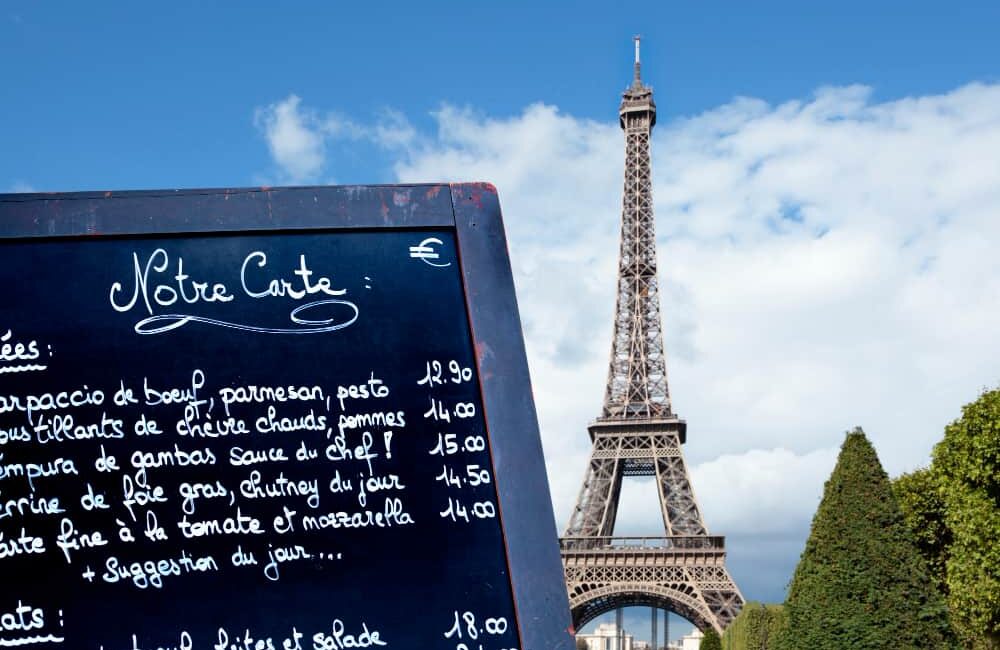 Notre Carte : €
ées :
arpaccio de boeuf, parmesan, pesto 12.90
oustillants de chèvre chauds, pommes 14.00
empura de gambas sauce du chef ! 15.00
errine de foie gras, chutney du jour 14.50
arte fine à la tomate et mozzarella 14.00
+ Suggestion du jour...
ats :
boeuf, frites et salade 18.00